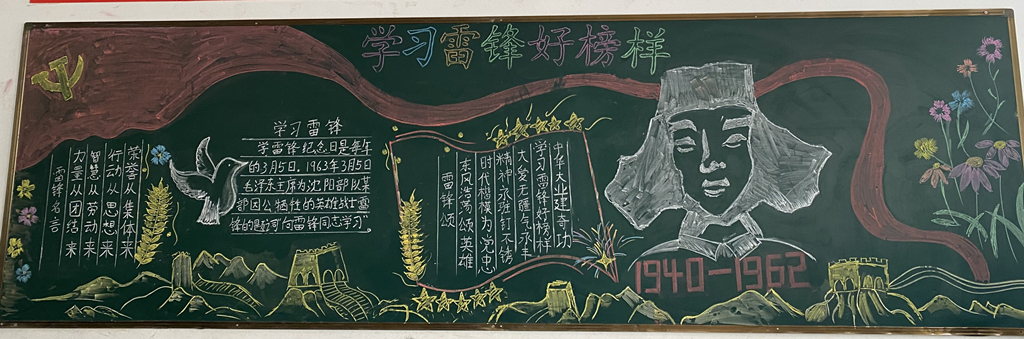 学习雷锋好榜样
荣誉从集体来
行动从思想来
智慧从劳动来
力量从团结来
雷锋名言
学习雷锋
学雷锋纪念日是每年
的3月5日,1963年3月5日
毛泽东主席为沈阳部队某
部因公牺牲的英雄战士雷
锋的题词“向雷锋同志学习”
中华大业建奇功
学习雷锋好榜样
大爱无疆气
精神永钉不锈
时代楷模为党忠
东风浩荡颂英雄
雷锋颂
1940-1962